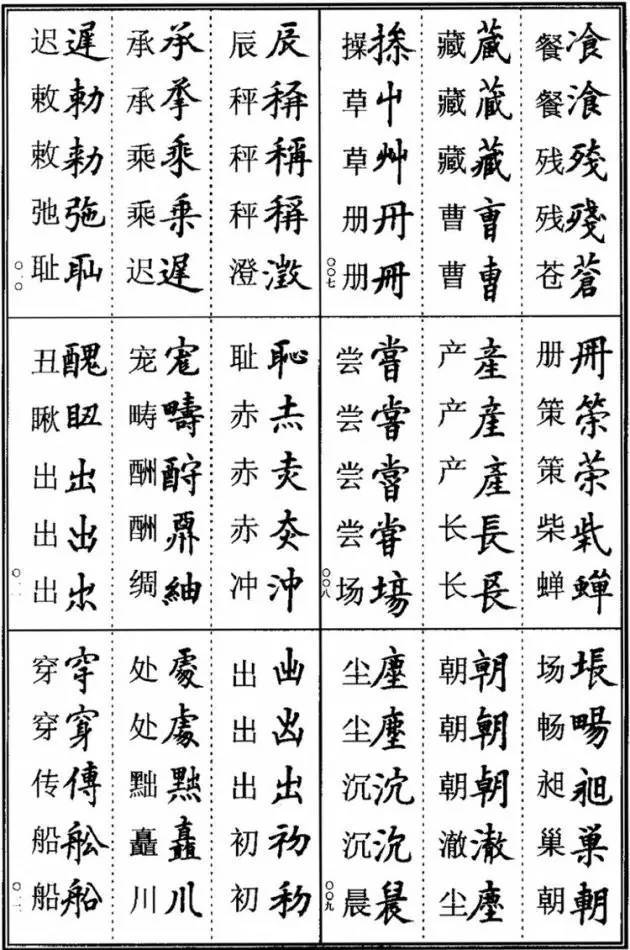 餐飡
餐湌
残残
残殘
苍蒼
藏蔵
藏蔵
藏藏
曹曺
曹曹
操
草屮
草艸
册冊
册冊
〇〇七
册冊
策筞
策䇿
柴
蝉蟬
产産
产産
产產
长長
长镸
尝嘗
尝嘗
尝嘗
尝甞
场塲
〇〇八
场
畅暘
昶昶
巢巢
朝朝
朝朝
朝朝
朝朝
澈澈
尘塵
尘塵
尘塵
沉沉
沉沉
晨晨
〇〇九
辰辰
秤秤
秤稱
秤稱
澄澂
承承
承
乘乘
乘乗
迟遲
迟遲
敕勅
敕勑
弛
耻耻
〇一〇
耻恥
赤
赤
赤
冲沖
宠
畴疇
酬酧
酬
绸紬
丑醜
瞅
出出
出
出
〇一一
出
出
出出
初初
初
处處
处處
黜黜
矗矗
川川
穿穿
穿穿
传傳
船舩
船船
〇一二